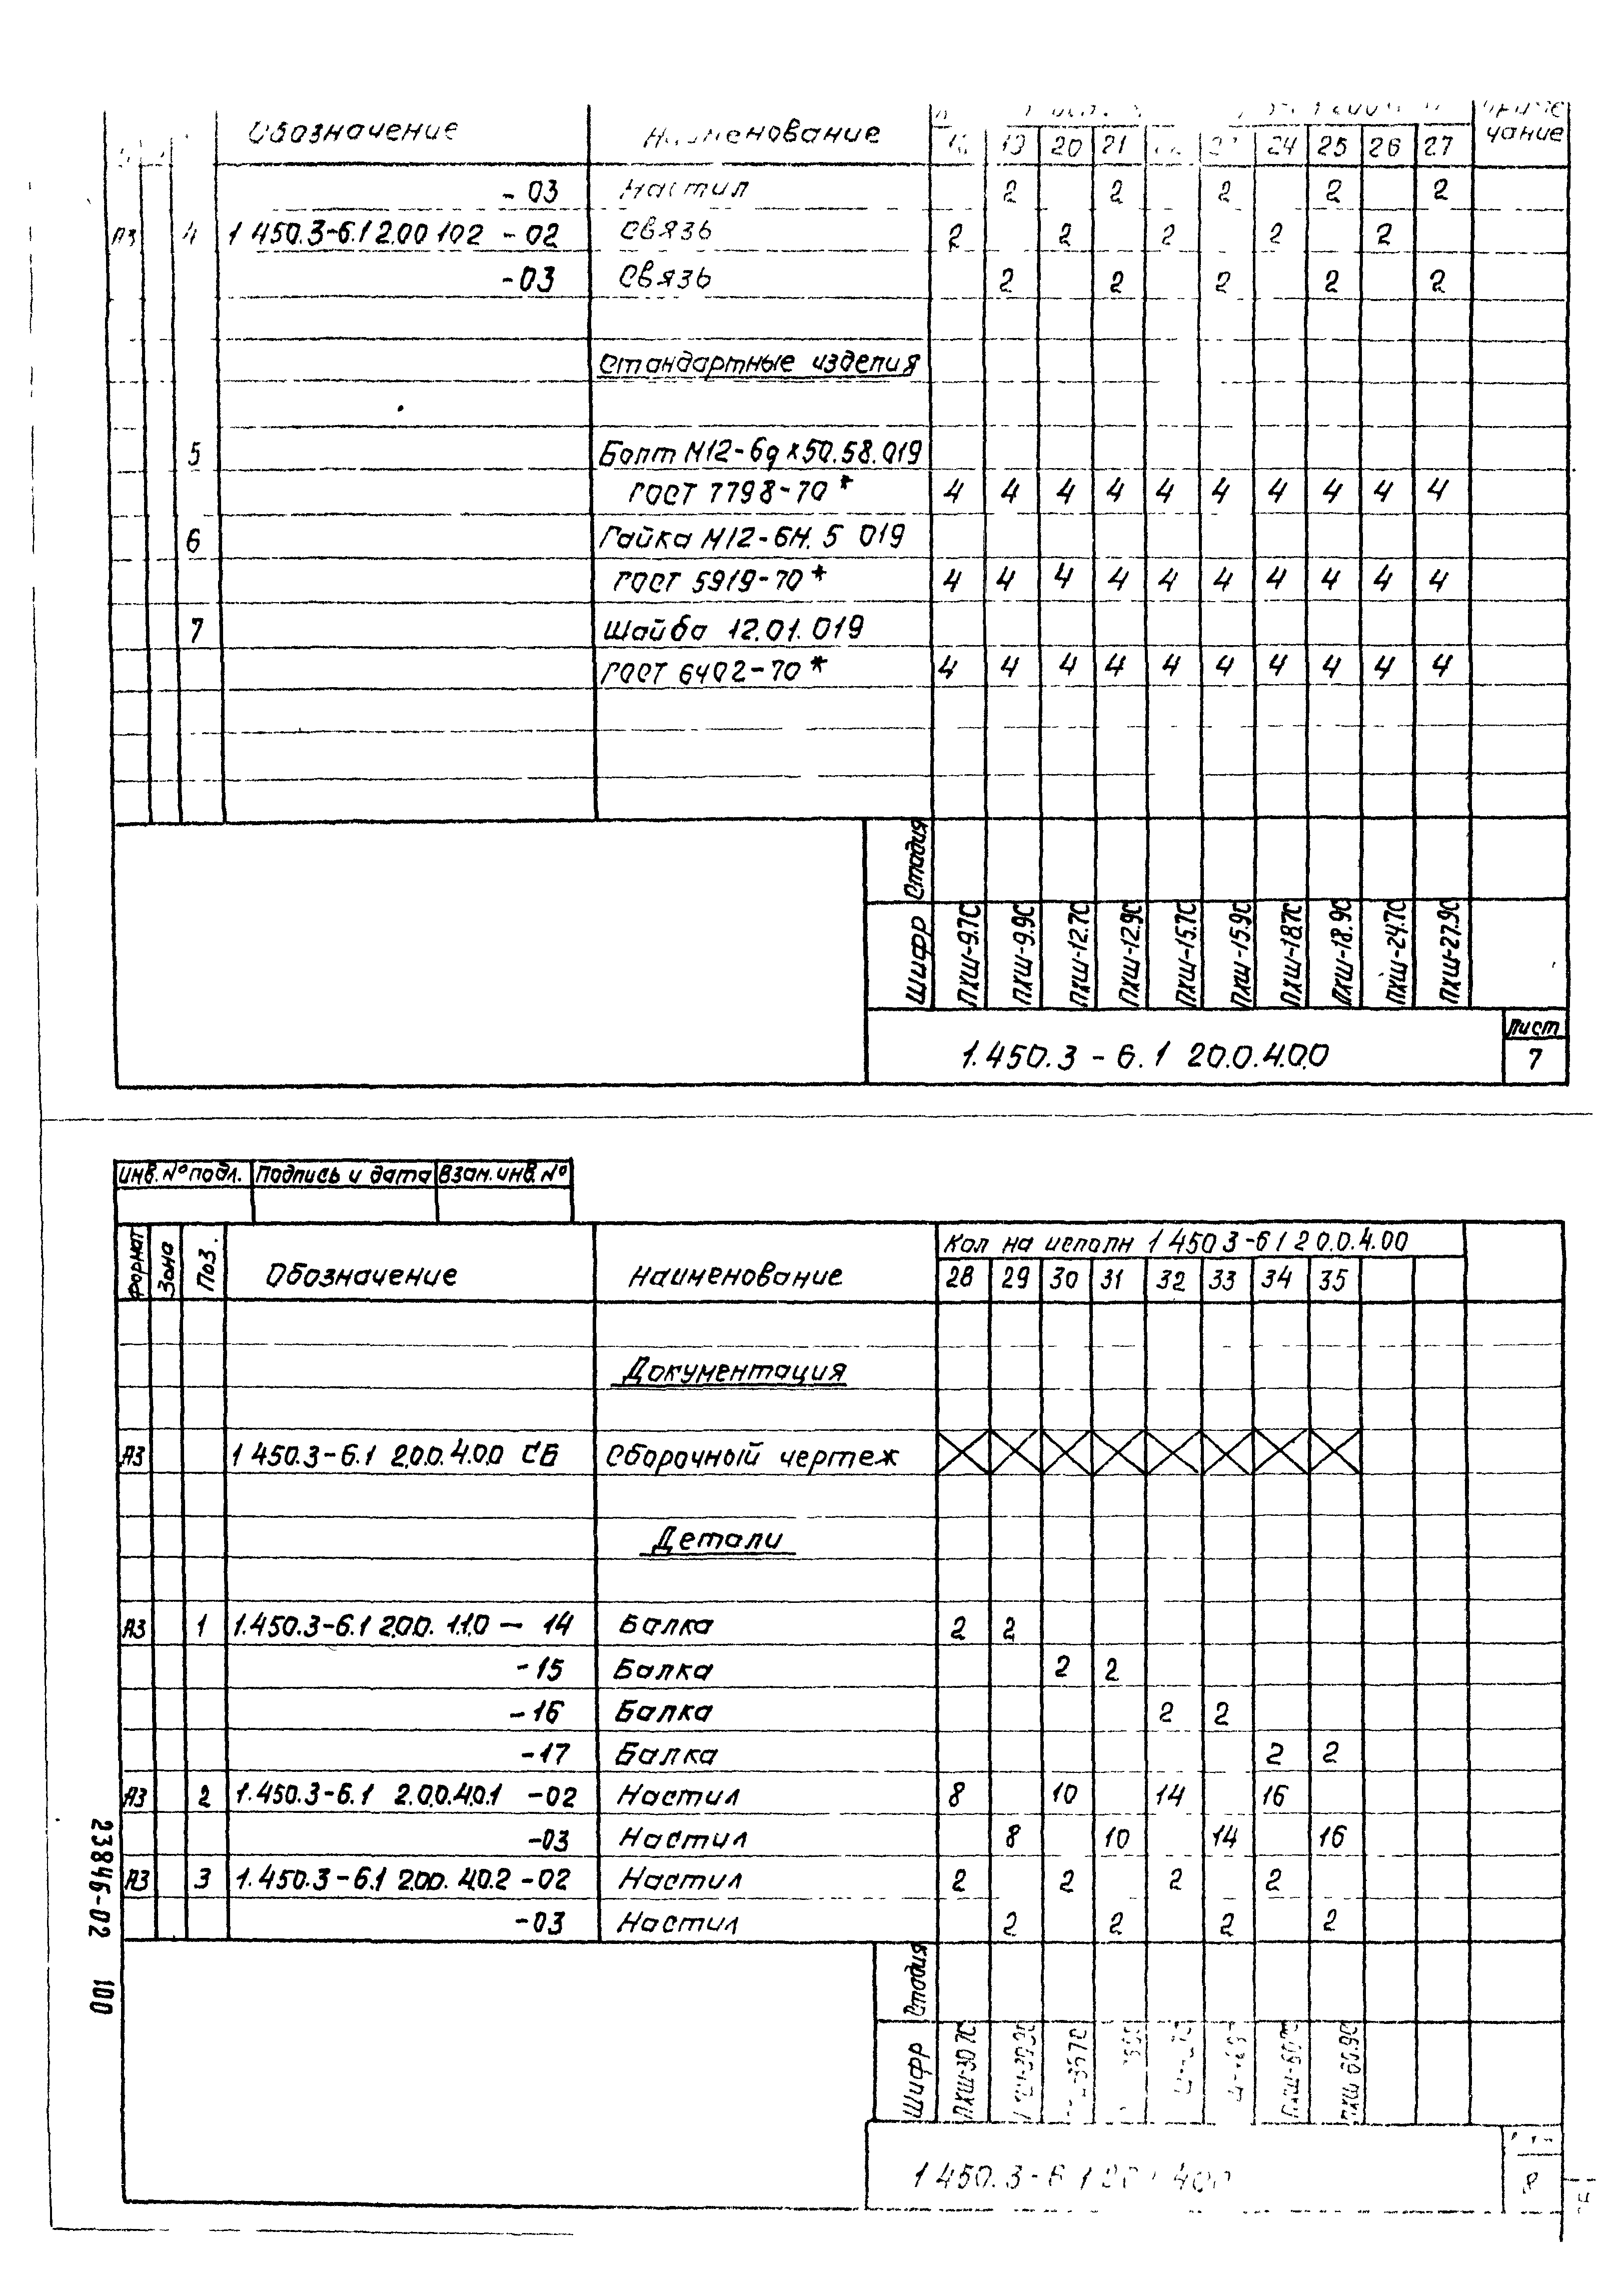 Обозначение Наименование чание
19 20 21 24 25 26 27
- 03 Настил 2 2 2 2 2
А3 4 1 450.3-6.1 2.00 102 - 02 Связь 2 2 2 2 2
-03 Связь 2 2 2 2 2
Стандартные изделия
5 Болт М12-6g×50.58.019
ГОСТ 7798-70* 4 4 4 4 4 4 4 4 4 4
6 Гайка М12-6Н. 5 019
ГОСТ 5919-70* 4 4 4 4 4 4 4 4 4 4
7 Шайба 12.01.019
ГОСТ 6402-70* 4 4 4 4 4 4 4 4 4 4
Стадия
Шифр ПХШ-9.7С ПХШ-9.9С ПХШ-12.7С ПХШ-12.9С ПХШ-15.7С ПХШ-15.9С ПХШ-18.7С ПХШ-18.9С ПХШ-24.7С ПХШ-27.9С
1.450.3 - 6.1 20.0.4.0.0
Лист
7
Инв. № подл. Подпись и дата Взам. инв. №
Формат Зона Поз. Обозначение Наименование Кол на исполн 1 450 3-6 1 2 0.0.4.00
28 29 30 31 32 33 34 35
Документация
А3 1 450.3-6.1 2.0.0.4.0.0 СБ Сборочный чертеж
Детали
А3 1 1.450.3-6.1 2.0.0. 1.1.0 - 14 Балка 2 2
-15 Балка 2 2
-16 Балка 2 2
-17 Балка 2 2
А3 2 1.450.3-6.1 2.0.0.4.0.1 -02 Настил 8 10 14 16
-03 Настил 8 10 14 16
А3 3 1.450.3-6.1 2.0.0. 4.0.2 -02 Настил 2 2 2 2
-03 Настил 2 2 2 2
Стадия
Шифр ПХШ-30 7С ПХШ-60.7С ПХШ 60.9С
1 450.3-6 1 20 400
8
23846-02 100